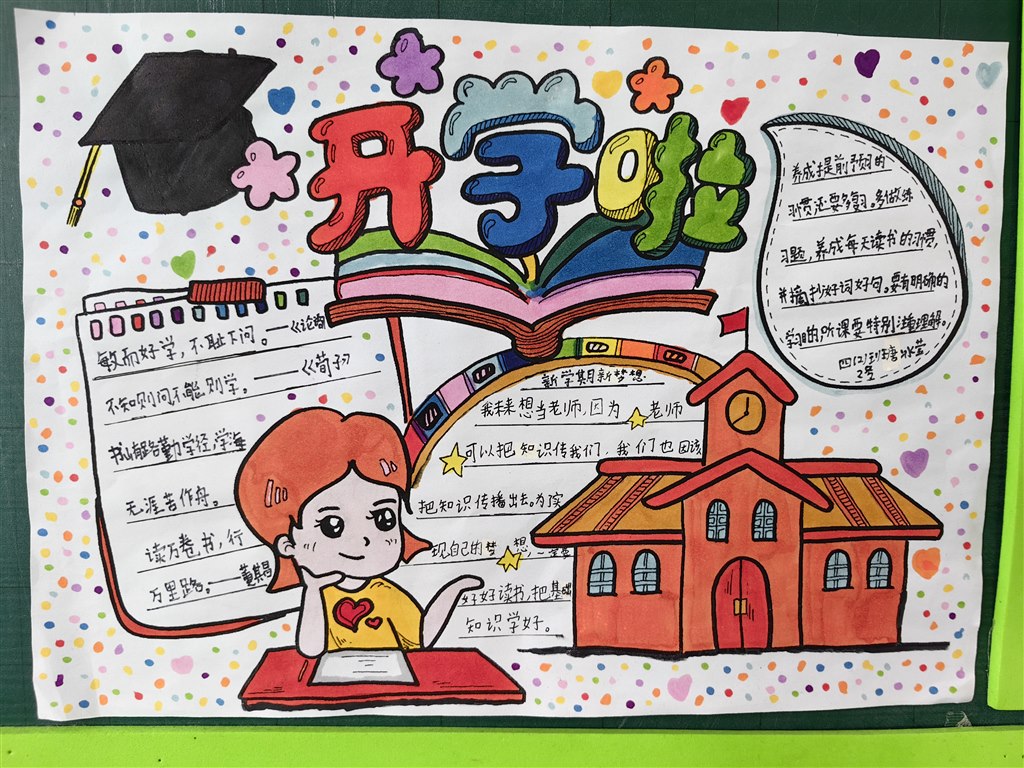 开学啦
敏而好学，不耻下问。——《论语
不知则问不能则学。——《荀子》
书山有路勤为径，学海
无涯苦作舟。
读万卷书，行
万里路。——董其昌
新学期新梦想
我未来想当老师，因为老师
可以把知识传我们，我们也因该
把知识传播出去。为了实
现自己的梦想，一定要
好好读书，把基础
知识学好。
养成提前预习的
习惯还要多复习。多做练
习题，养成每天读书的习惯，
并摘抄好词好句。要有明确的
学习目的，听课要特别注意理解。
四(2)班
2号